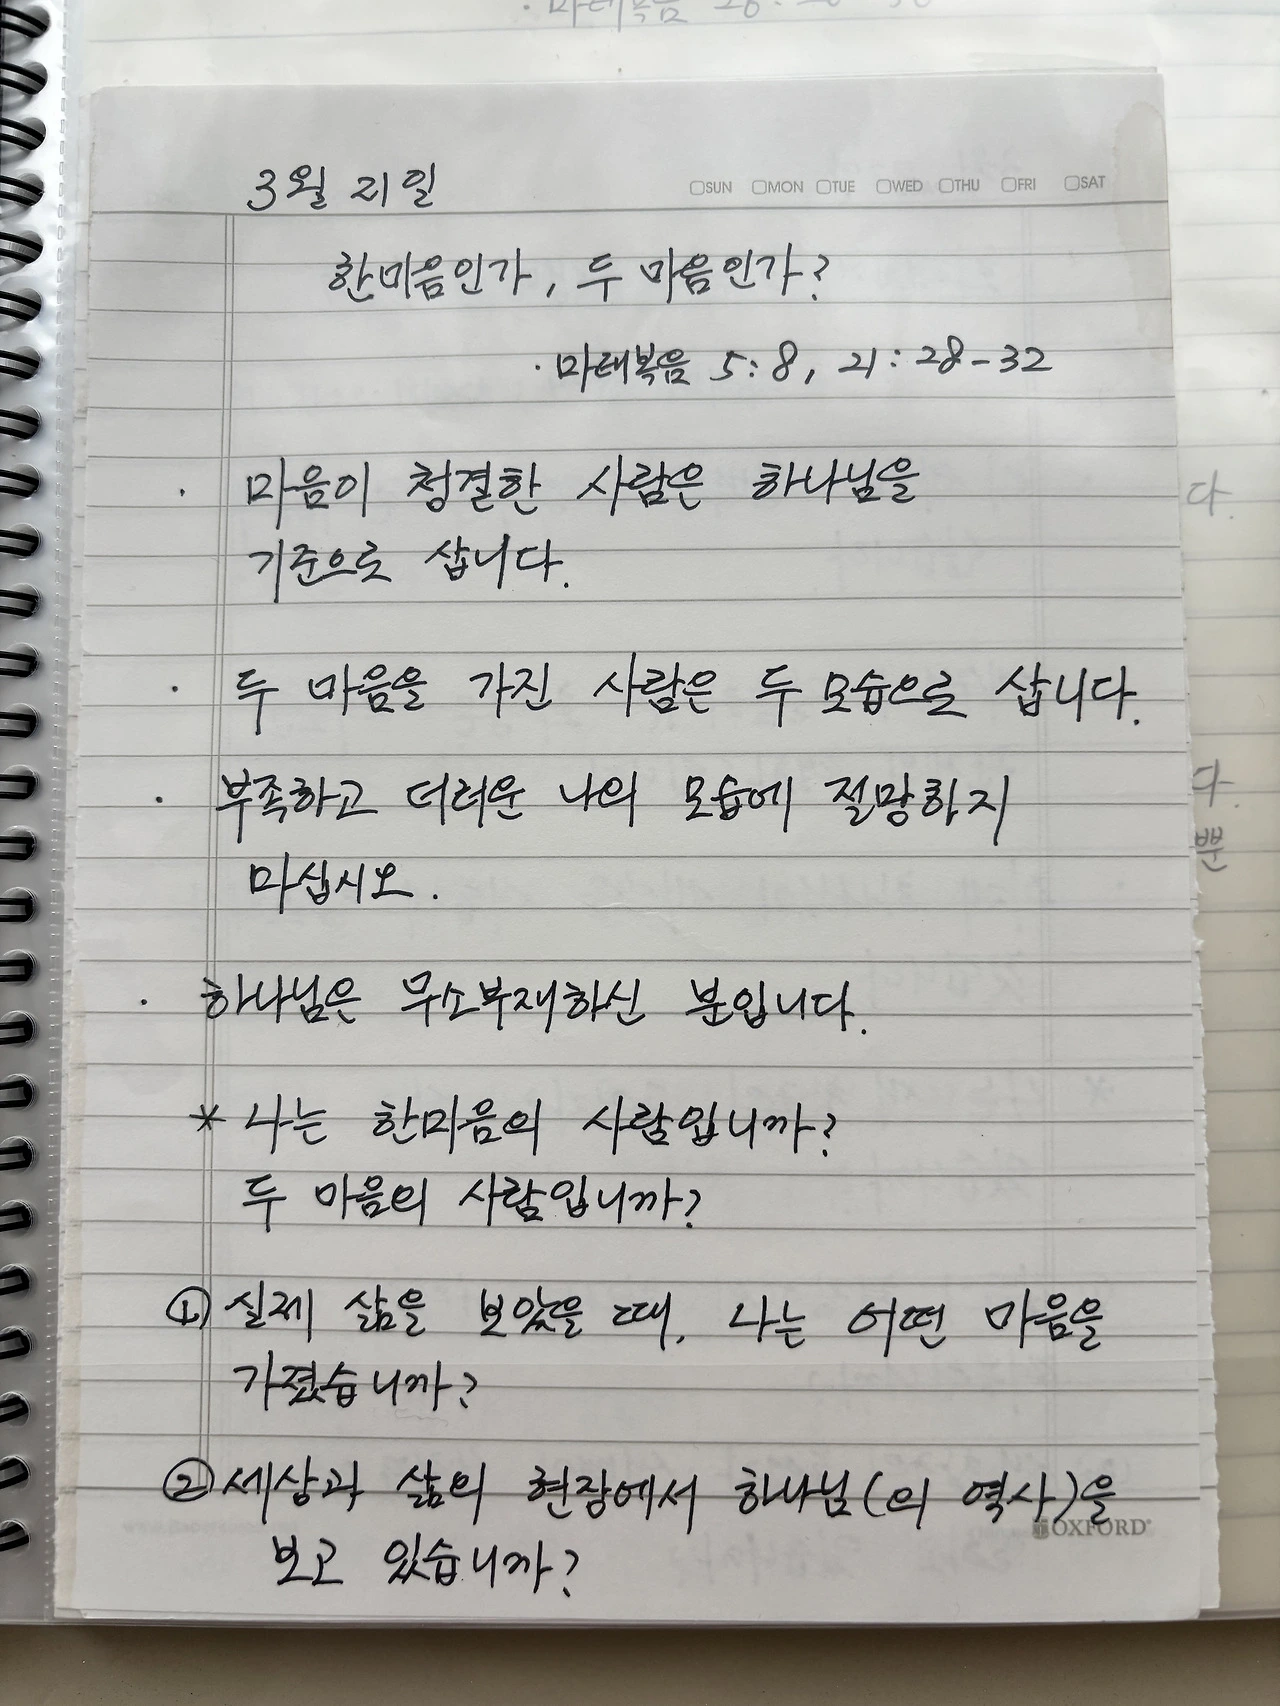 · 마태복음 28:
3월 21일
SUN MON TUE WED THU FRI SAT
한마음인가, 두 마음인가?
· 마태복음 5:8, 21:28-32
· 마음이 청결한 사람은 하나님을
기준으로 삽니다.
· 두 마음을 가진 사람은 두 모습으로 삽니다.
· 부족하고 더러운 나의 모습에 절망하지
마십시오.
· 하나님은 무소부재하신 분입니다.
* 나는 한마음의 사람입니까?
두 마음의 사람입니까?
① 실제 삶을 보았을 때, 나는 어떤 마음을
가졌습니까?
② 세상과 삶의 현장에서 하나님(의 역사)을
보고 있습니까?
OXFORD
다.
다.
뿐